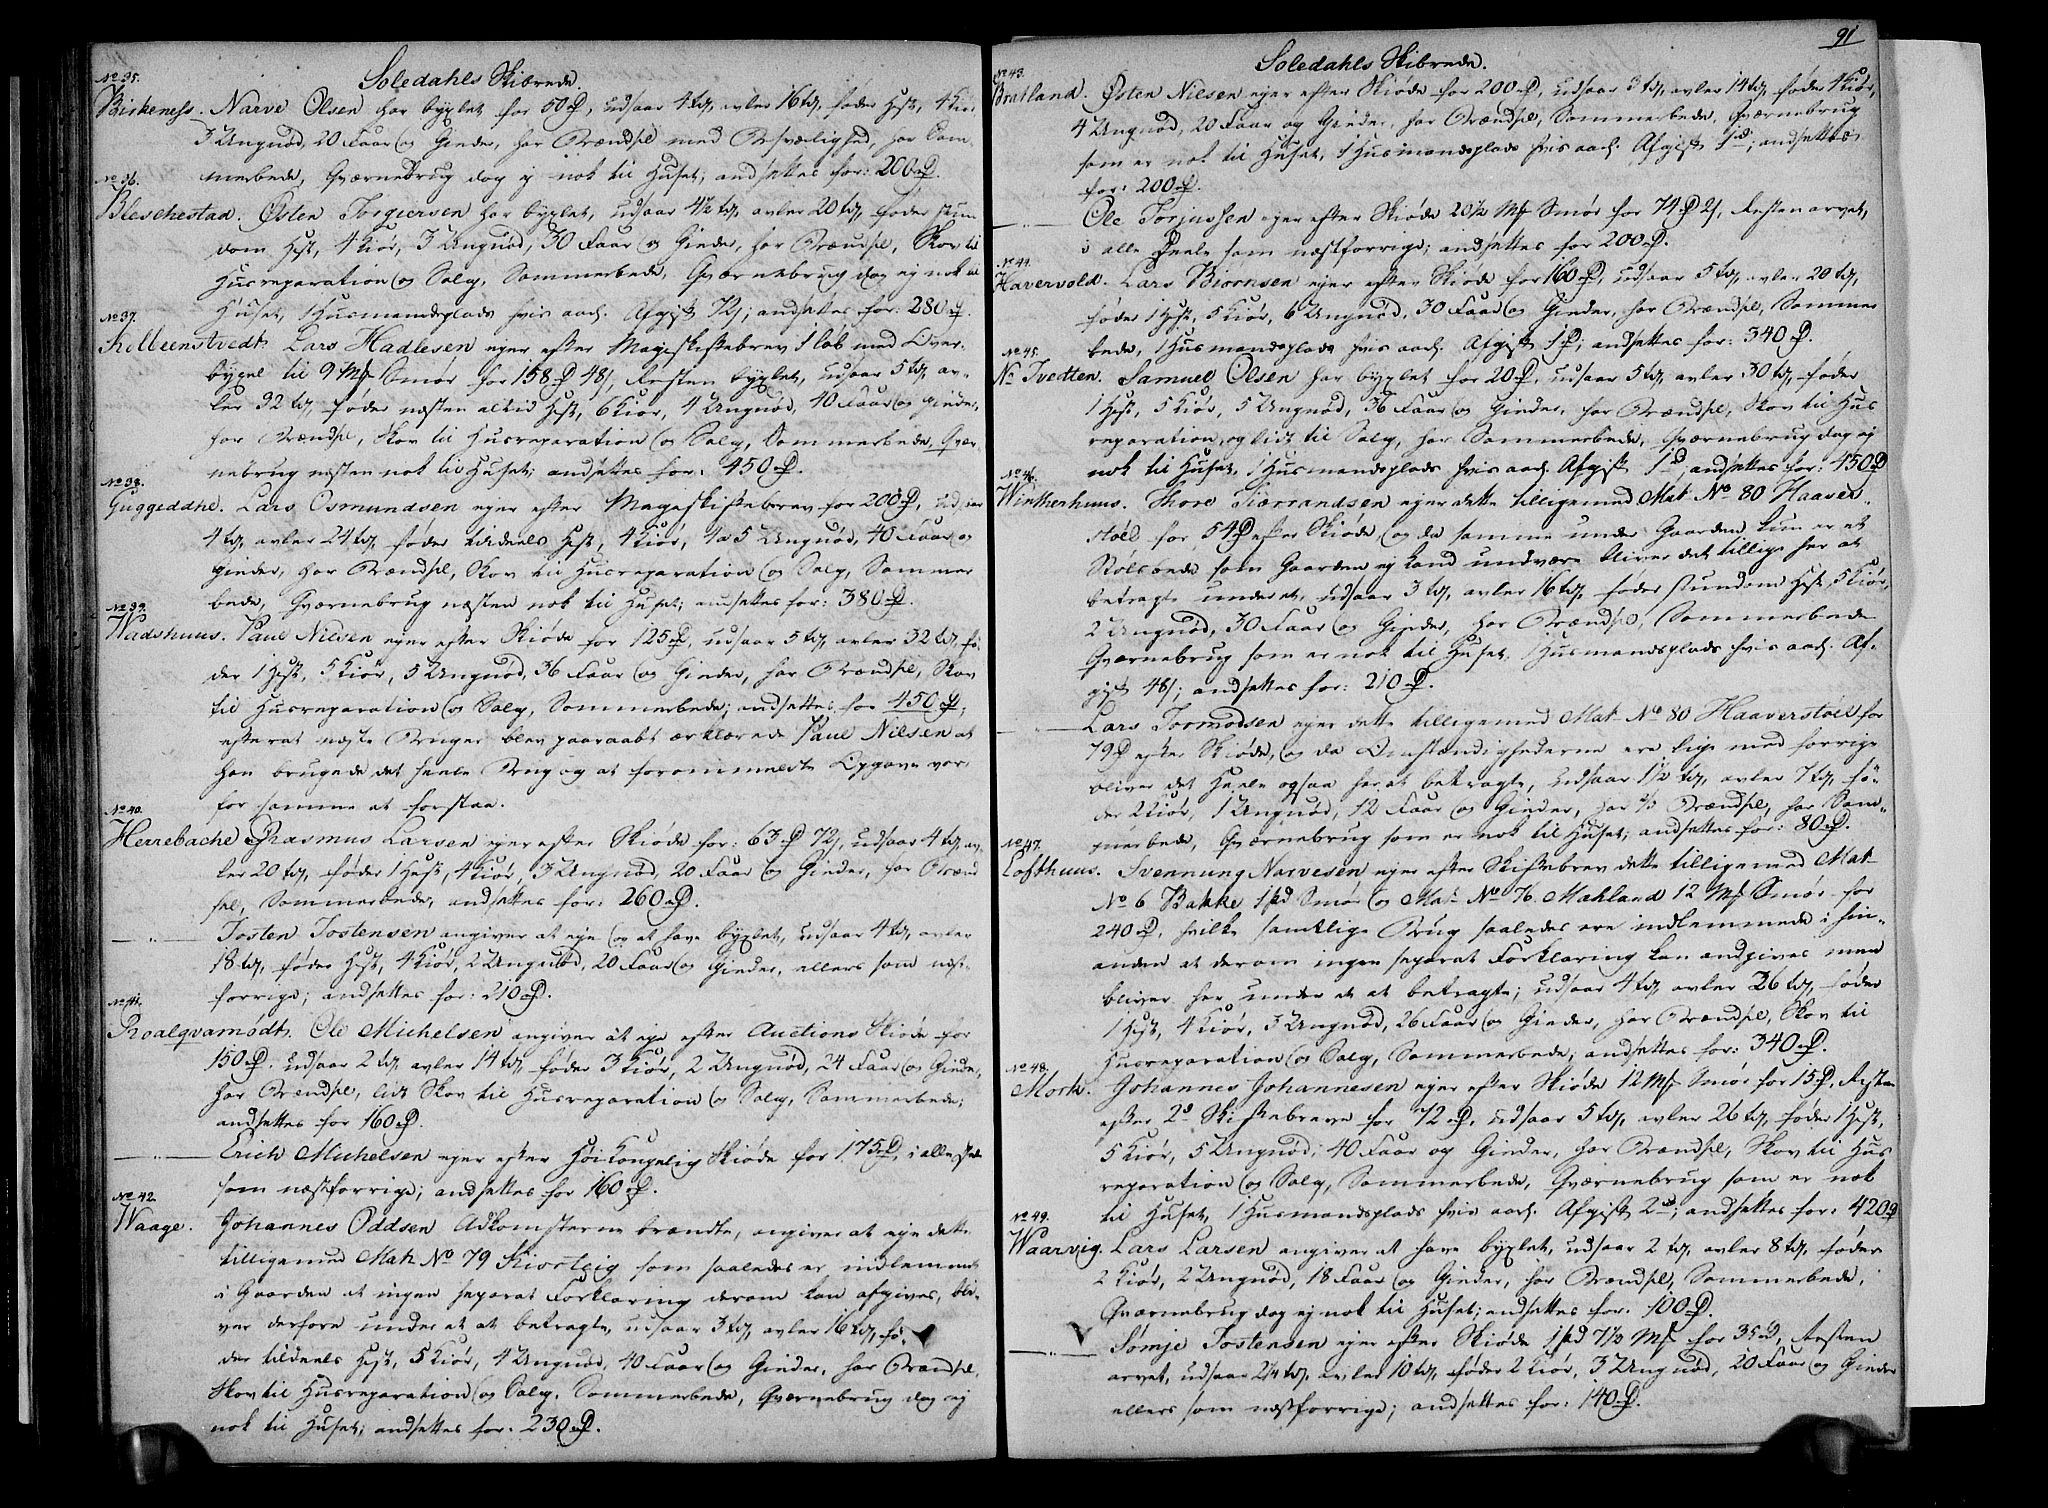 Soledahls Skibrede.
No 35.
Birkeness. Narve Olsen har byxlet for 50 D, udsaar 4 td, avler 16 td, føder Hest, 4 Kiør,
3 Ungnød, 20 Faar og Gieder, har Brændsel med Besværlighed, har Som-
merbede, Qværnebrug dog ej nok til Huset; andsettes for: 200 D.
No 36.
Bleschestad. Østen Torgiersen har byxlet, udsaar 4½ td, avler 20 td, føder stun-
dom Hest, 4 Kiør, 3 Ungnød, 30 Faar og Gieder, har Brændsel, Skov til
Husreparation og Salg, Sommerbede, Qværnebrug dog ej nok til
Huset, 1 Husmandsplads hvis aarl. Afgift 72 s; andsettes for: 280 D.
No 37.
Kilbeenstvedt. Lars Hadlesen ejer efter Mageskiftebrev 1 løb med Over-
byxel til 9 Mk Smør for 158 D 48 s, Resten byxlet, udsaar 5 td, av-
ler 32 td, føder næsten altid Hest, 6 Kiør, 4 Ungnød, 40 Faar og Gieder,
har Brændsel, Skov til Husreparation og Salg, Sommerbede, Qvær-
nebrug næsten nok til Huset; andsettes for: 450 D.
No 38.
Guggeddhe. Lars Osmundsen ejer efter Mageskiftebrev for 200 D, udsaar
4 td, avler 24 td, føder tildeels Hest, 4 Kiør, 4 a 5 Ungnød, 40 Faar og
Gieder, har Brændsel, Skov til Husreparation og Salg, Sommer
bede, Qværnebrug næsten nok til Huset; andsettes for: 380 D.
No 39.
Wadshuus. Paul Nilsen ejer efter Skiøde for 125 D, udsaar 5 td, avler 32 td, fø-
der 1 Hest, 5 Kiør, 5 Ungnød, 36 Faar og Gieder, har Brændsel, Skov
til Husreparation og Salg, Sommerbede; andsettes for 450 D;
efterat næste Bruger blev paaraabt erklærede Paul Nilsen at
han brugede det heele Brug og at forommeldte Opgave var
for samme at forstaa.
No 40.
Herrebache Rasmus Larsen ejer efter Skiøde for: 63 D 72 s, udsaar 4 td, av-
ler 20 td, føder 1 Hest, 4 Kiør, 3 Ungnød, 20 Faar og Gieder, har Brænd
sel, Sommerbede, andsettes for: 260 D.
— „ — Tosten Tostensen angiver at eje og at have byxlet, udsaar 4 td, avler
18 td, føder Hest, 4 Kiør, 2 Ungnød, 20 Faar og Gieder, ellers som næst-
forrige; andsettes for: 210 D.
No 41.
Roalqvamødt. Ole Michelsen angiver at eje efter Auctions Skiøde for
150 D. udsaar 2 td, avler 14 td, føder 3 Kiør, 2 Ungnød, 24 Faar og Gieder,
har Brændsel, lidt Skov til Husreparation og Salg, Sommerbede;
andsettes for 160 D.
— „ — Erich Michelsen ejer efter Høikongelig Skiøde for 175 D, i alle Deele
som næstforrige; andsettes for 160 D.
No 42.
Waage. Johannes Oddsen Adkomsterne brændte, angiver at eje dette
tilligemed Mat. No 79 Kiosteig som saaledes er indlemmet
i Gaarden at ingen separat Forklaring derom kan afgives, bli-
ver derfore under et at betragte, udsaar 3 td, avler 16 td, fø-
der tildeels Hest, 5 Kiør, 4 Ungnød, 40 Faar og Gieder, har Brændsel,
Skov til Husreparation og Salg, Sommerbede, Qværnebrug dog ej
nok til Huset; andsettes for: 230 D.
91
Soledahls Skibrede.
No 43.
Bratland. Østen Nilsen ejer efter Skiøde for 200 D, udsaar 3 td, avler 14 td, føder 4 Kiør,
4 Ungnød, 20 Faar og Gieder, har Brændsel, Sommerbede, Qværnebrug
som er nok til Huset, 1 Husmandsplads hvis aarl. Afgift 1 D; andsettes
for: 200 D.
— „ — Ole Torjussen ejer efter Skiøde 20½ Mk Smør for 74 D 2 s, Resten arvet,
i alle Deele som næstforrige; andsettes for 200 D.
No 44.
Havervold. Lars Biørnsen ejer efter Skiøde for 160 D, udsaar 5 td, avler 20 td,
føder 1 Hest, 5 Kiør, 6 Ungnød, 30 Faar og Gieder, har Brændsel, Sommer
bede, 1 Husmandsplads hvis aarl. Afgift 1 D; andsettes for: 340 D.
No 45.
N. Tvedten. Samuel Olsen har byxlet for 20 D, udsaar 5 td, avler 30 td, føder
1 Hest, 5 Kiør, 5 Ungnød, 36 Faar og Gieder, har Brændsel, Skov til Hus
reparation og lidt til Salg, har Sommerbede, Qværnebrug dog ej
nok til Huset, 1 Husmandsplads hvis aarl. Afgift 1 D andsettes for: 450 D
No 46.
Wintherhuus. Thore Siærrandsen ejer dette tilligemed Mat. No 80 Haaver-
støel for 54 D efter Skiøde og da samme under Gaarden kun er et
Stølsbede som Gaarden ej kand undvære bliver det tillige her at
betragte under et, udsaar 3 td, avler 16 td, føder stundom Hest, 5 Kiør,
2 Ungnød, 30 Faar og Gieder, har Brændsel, Sommerbede
Qværnebrug som er nok til Huset, 1 Husmandsplads hvis aarl. Af-
gift 48 s; andsettes for: 210 D.
— „ — Lars Tormodsen ejer dette tilligemed Mat. No 80 Haaverstøel for
79 D efter Skiøde, og da Omstændighederne ere lige med forrige
bliver det heele ogsaa her at betragte, udsaar 1½ td, avler 7 td, fø-
der 2 Kiør, 1 Ungnød, 12 Faar og Gieder, har ⅔ Brændsel, har Som-
merbede, Qværnebrug som er nok til Huset; andsettes for: 80 D.
No 47.
Lofthuus. Svennung Narvesen ejer efter Skiftebrev dette tilligemed Mat.
No 6 Bakke 1 spd Smør og Mat. No 76 Mæhland 12 Mk Smør for
240 D, hvilke samtlige Brug saaledes ere indlemmede i hin-
anden at derom ingen separat Forklaring kan andgives men
bliver her under et at betragte; udsaar 4 td, avler 26 td, føder
1 Hest, 4 Kiør, 3 Ungnød, 26 Faar og Gieder, har Brændsel, Skov til
Husreparation og Salg, Sommerbede, andsettes for: 340 D.
No 48.
Mork. Johannes Johannesen ejer efter Skiøde 12 Mk Smør for 15 D, Resten
efter 2de Skiftebreve for 72 D, udsaar 5 td, avler 26 td, føder 1 Hest,
5 Kiør, 5 Ungnød, 40 Faar og Gieder, har Brændsel, Skov til Hus
reparation og Salg, Sommerbede, Qværnebrug som er nok
til Huset, 1 Husmandsplads hvis aarl. Afgift 2 D; andsettes for: 420 D
No 49.
Waarvig. Lars Larsen angiver at have byxlet, udsaar 2 td, avler 8 td, føder
2 Kiør, 2 Ungnød, 18 Faar og Gieder, har Brændsel, Sommerbede,
Qværnebrug dog ej nok til Huset; andsettes for: 100 D.
— „ — Sømje Tostensen ejer efter Skiøde 1 spd 7½ Mk for 35 D, Resten
arvet, udsaar 2¼ td, avler 10 td, føder 2 Kiør, 3 Ungnød, 20 Faar og Gieder
ellers som næstforrige; andsettes for: 140 D.